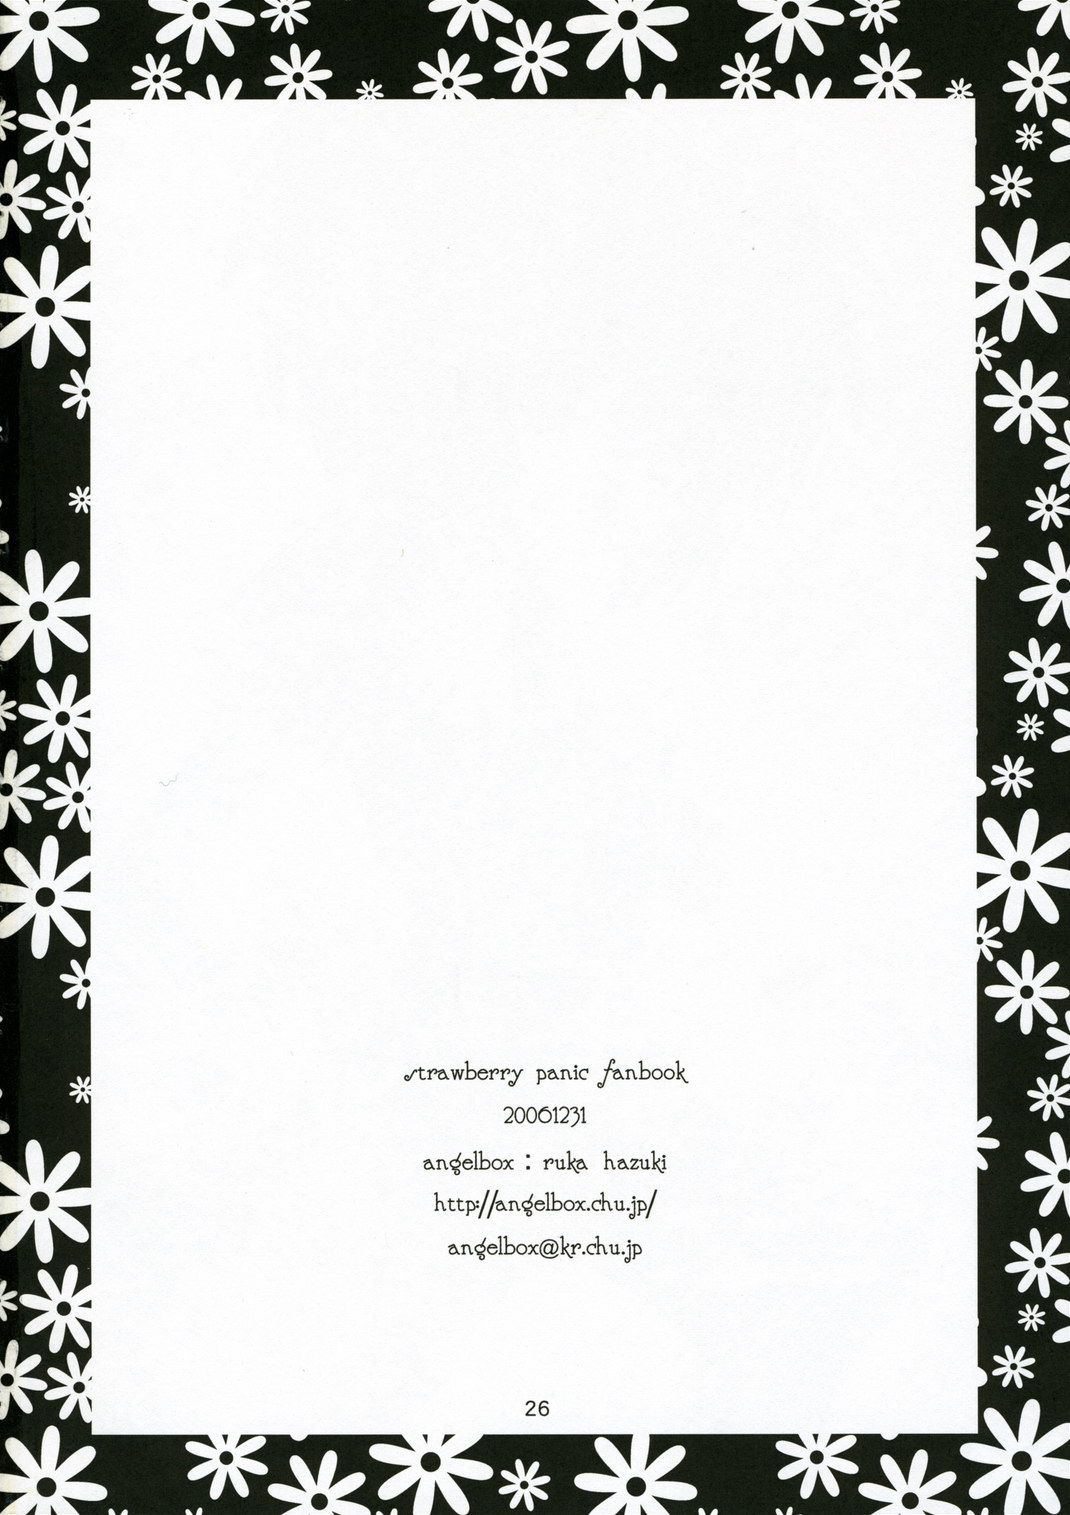 strawberry panic fanbook
20061231
angelbox : ruka hazuki
http://angelbox.chu.jp/
angelbox@kr.chu.jp
26